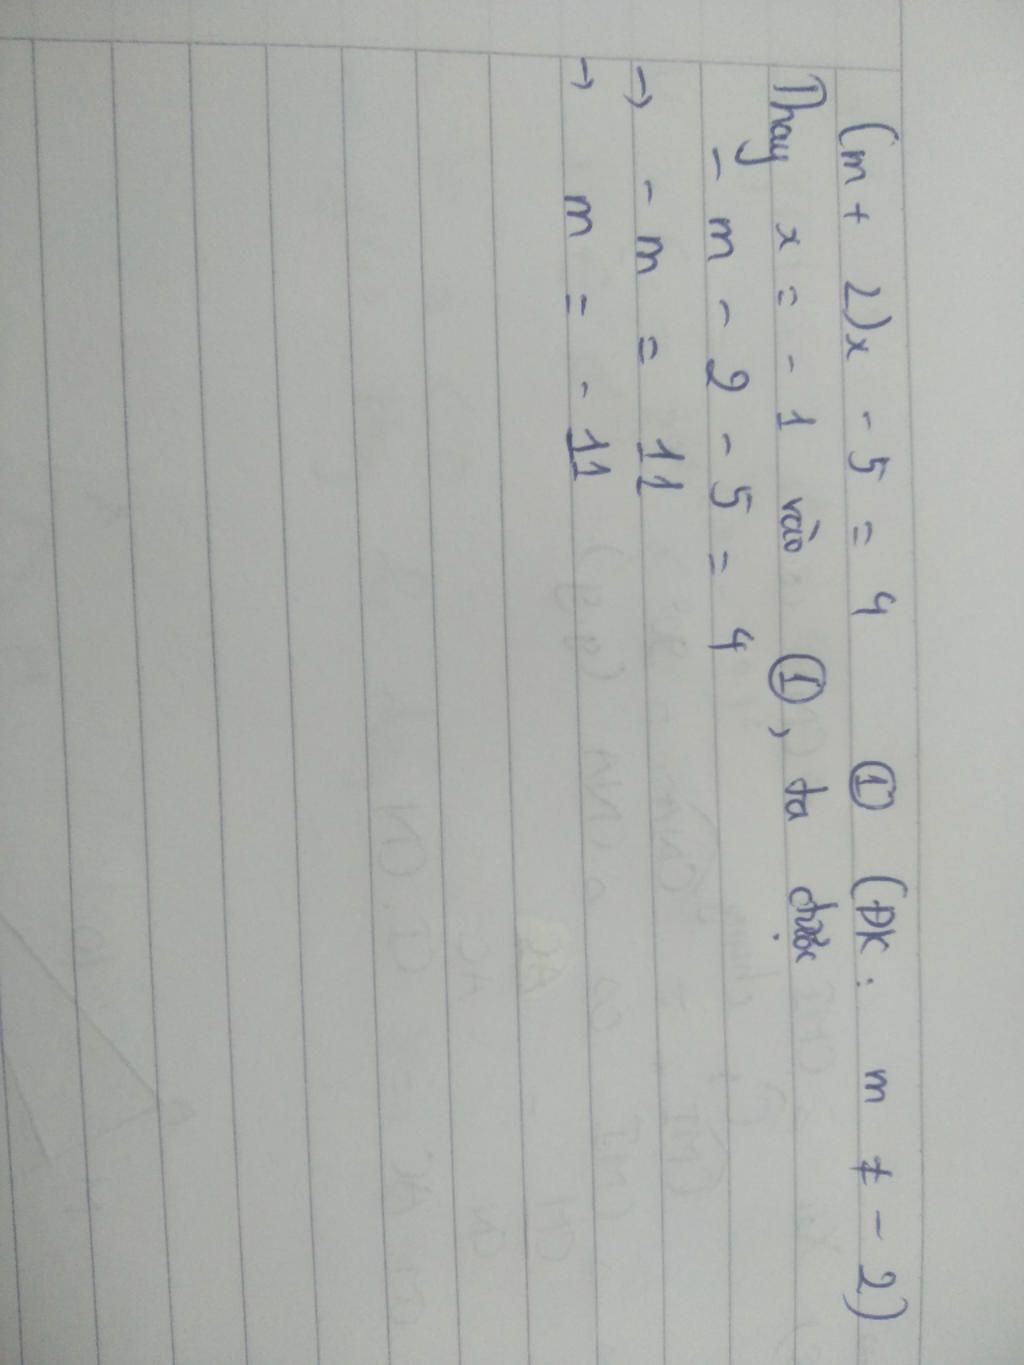 (m + 2)x - 5 = 4 ① (ĐK: m ≠ - 2)
Thay x = - 1 vào ①, ta được
- m - 2 - 5 = 4
→ - m = 11
→ m = - 11